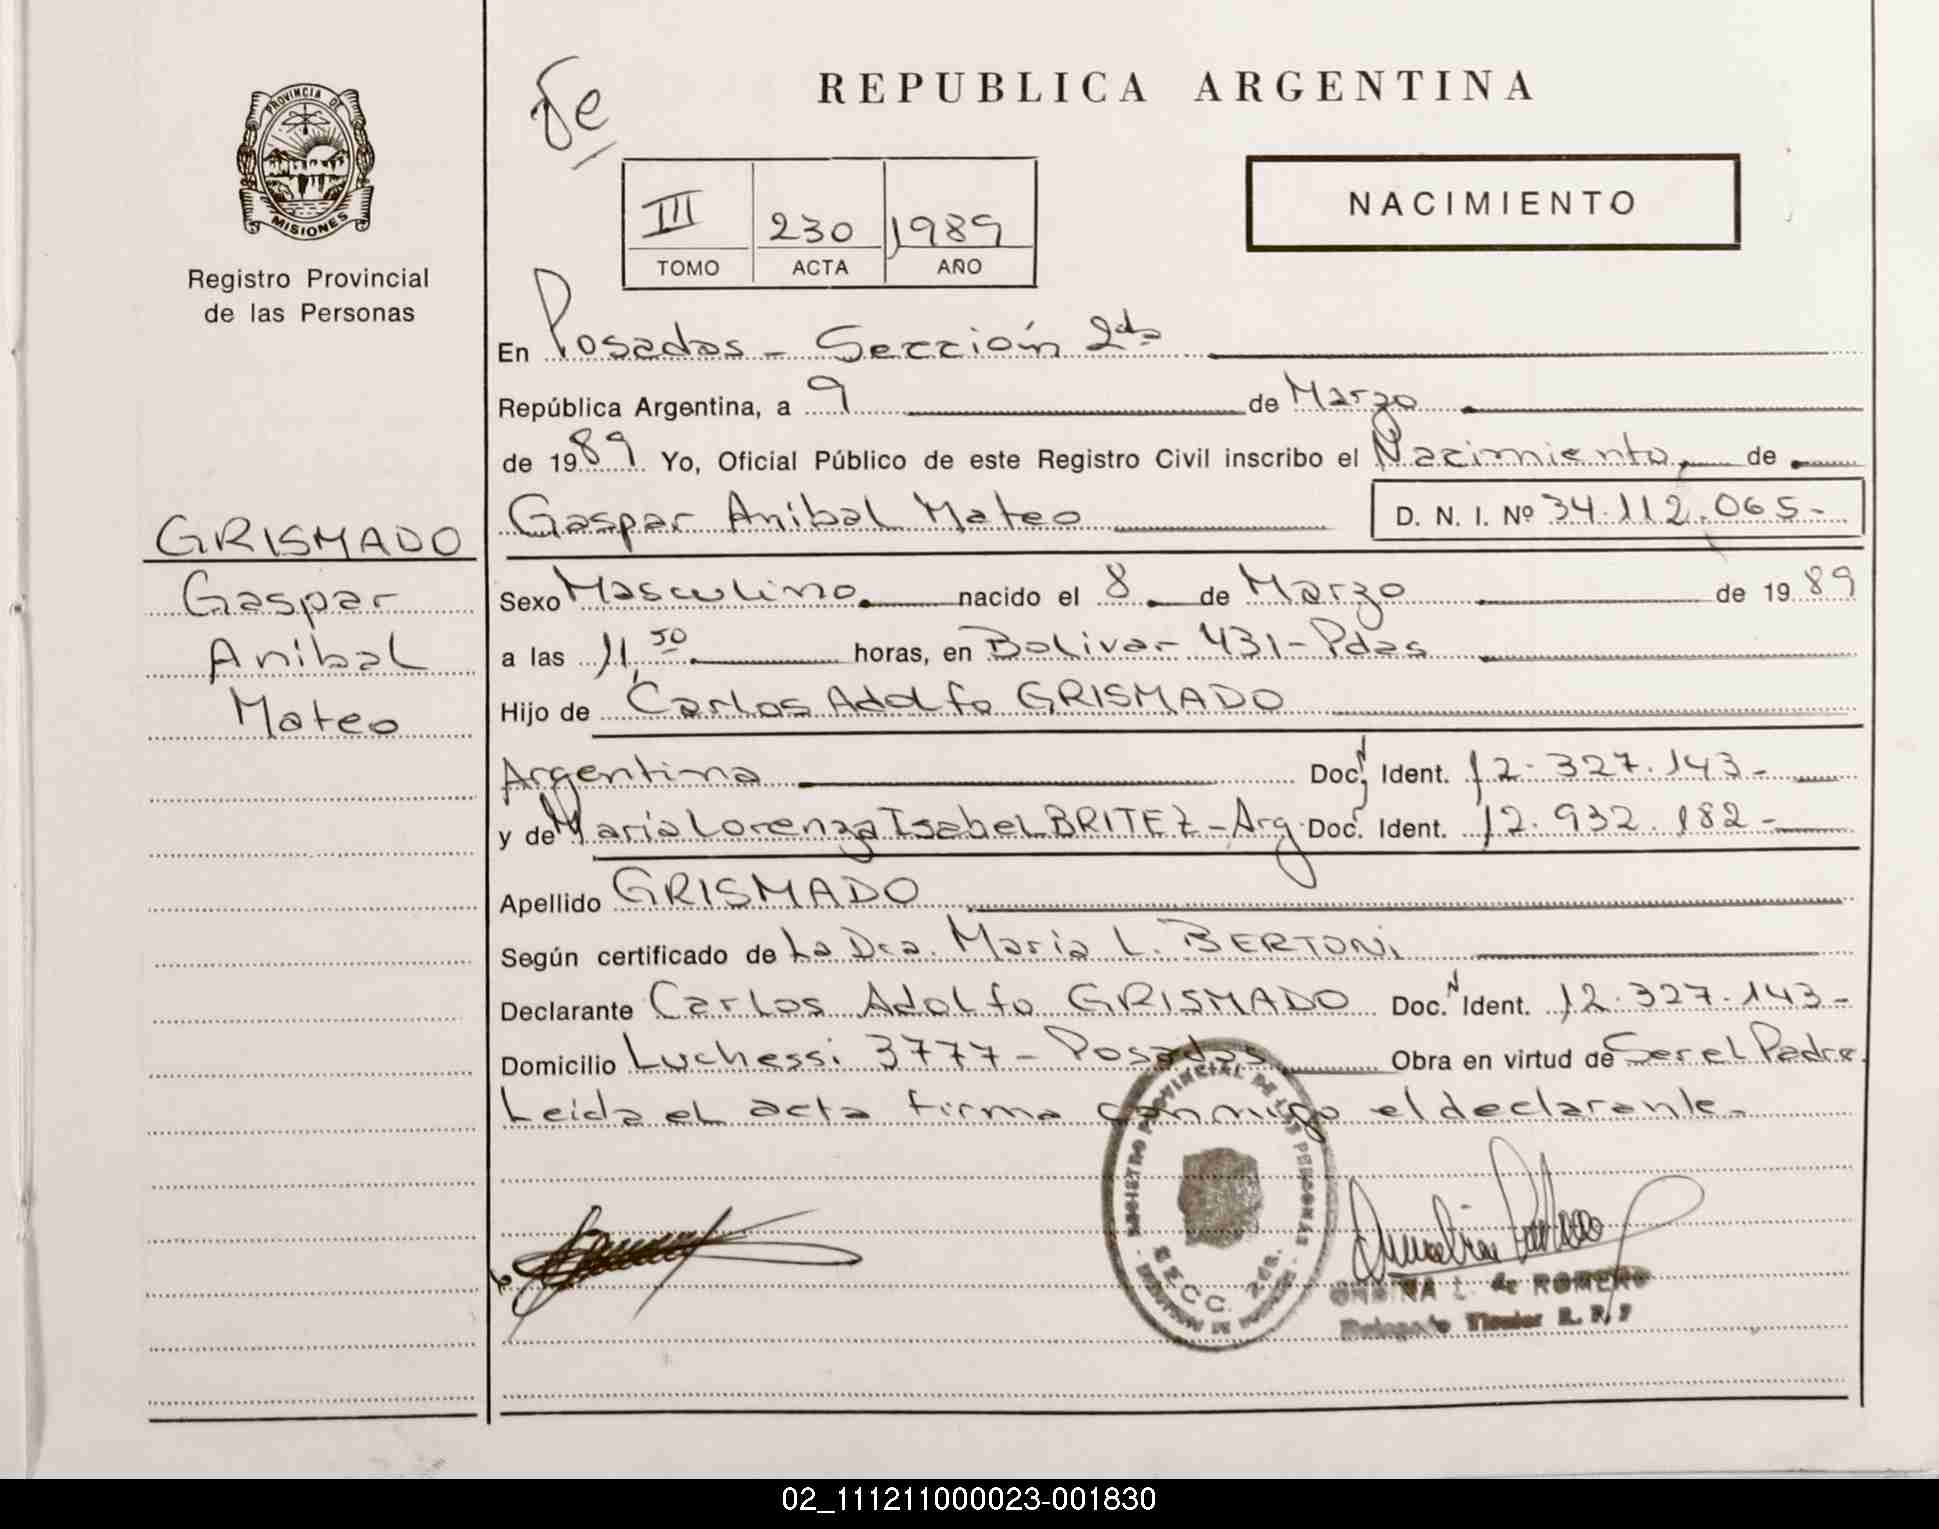 REPUBLICA ARGENTINA
PROVINCIA DE
MISIONES
Registro Provincial
de las Personas
NACIMIENTO
III 230 1989
TOMO ACTA AÑO
En Posadas - Sección 2da
República Argentina, a 9 de Marzo
de 1989 Yo, Oficial Público de este Registro Civil inscribo el Nacimiento, de
Gaspar Anibal Mateo D. N. I. Nº 34.112.065-
GRISMADO
Gaspar
Anibal
Mateo
Sexo Masculino nacido el 8 de Marzo de 1989
a las 11,50 horas, en Bolivar 431 - Pdas
Hijo de Carlos Adolfo GRISMADO
Argentina Doc. N Ident. 12.327.143-
y de María Lorenza Isabel BRITEZ - Arg. Doc. Ident. 12.932.182-
Apellido GRISMADO
Según certificado de La Dra. Maria L. BERTONI
Declarante Carlos Adolfo GRISMADO Doc. N Ident. 12.327.143-
Domicilio Luchessi 3777 - Posadas Obra en virtud de Ser el Padre.
Leida el acta firma conmigo el declarante.
REGISTRO PROVINCIAL DE LAS PERSONAS
SECC. 2da.
L. de ROMERO
Titular R. P. P
02_111211000023-001830